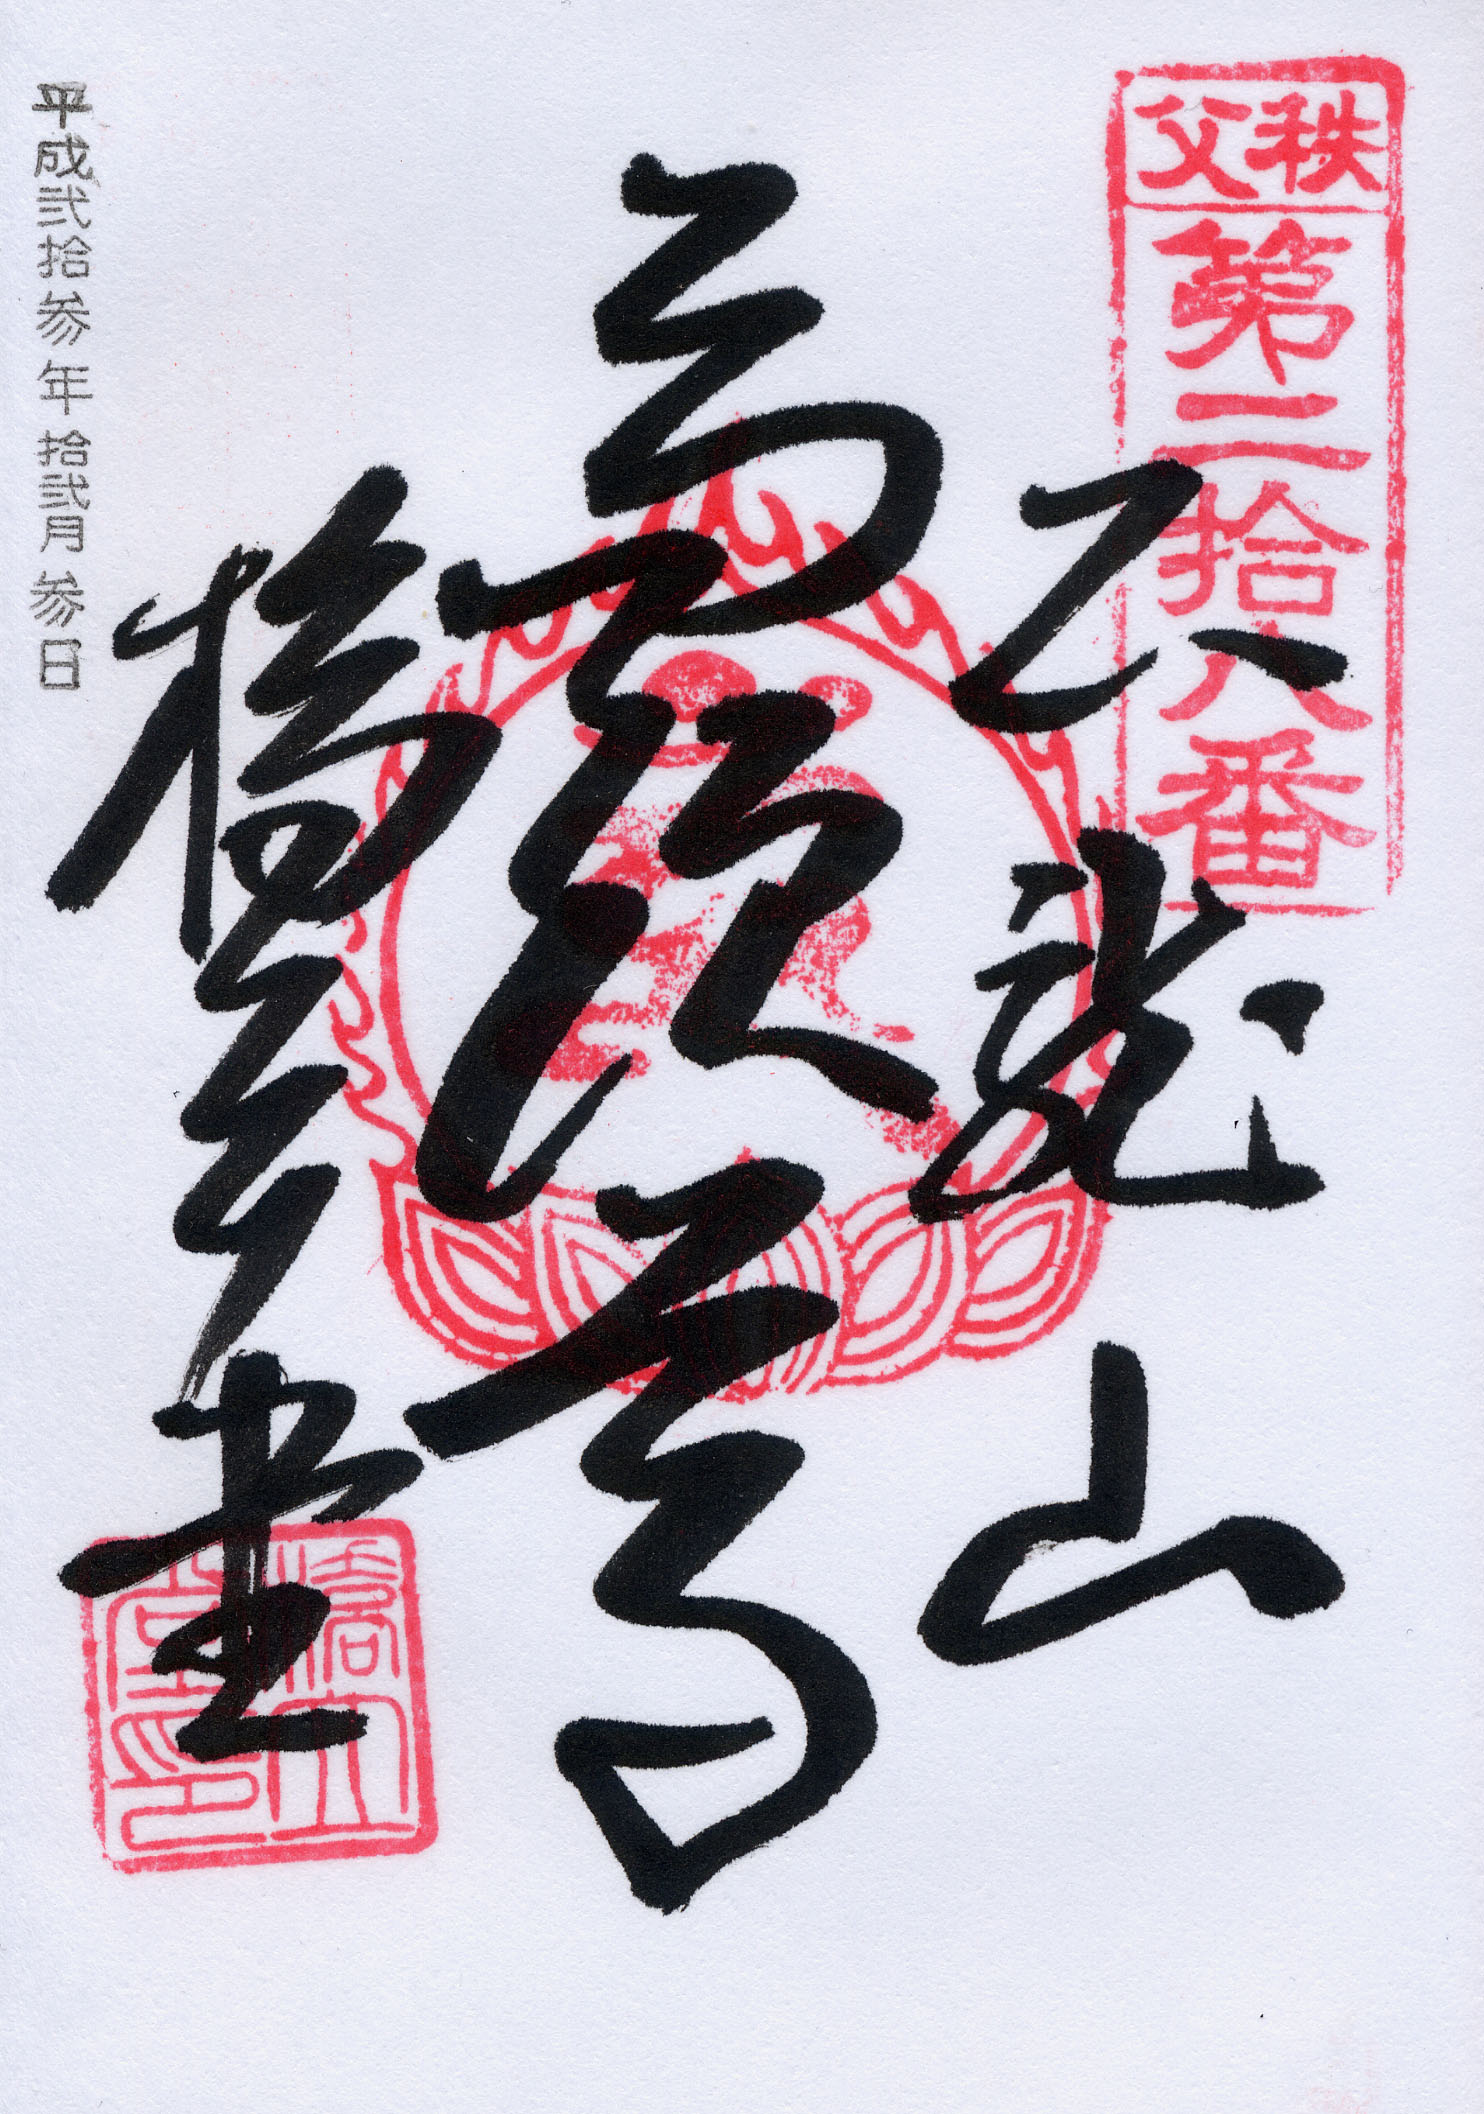 秩父
第二拾八番
石龍山
馬頭尊
橋立堂
平成弐拾参年拾弐月参日
橋立
堂印